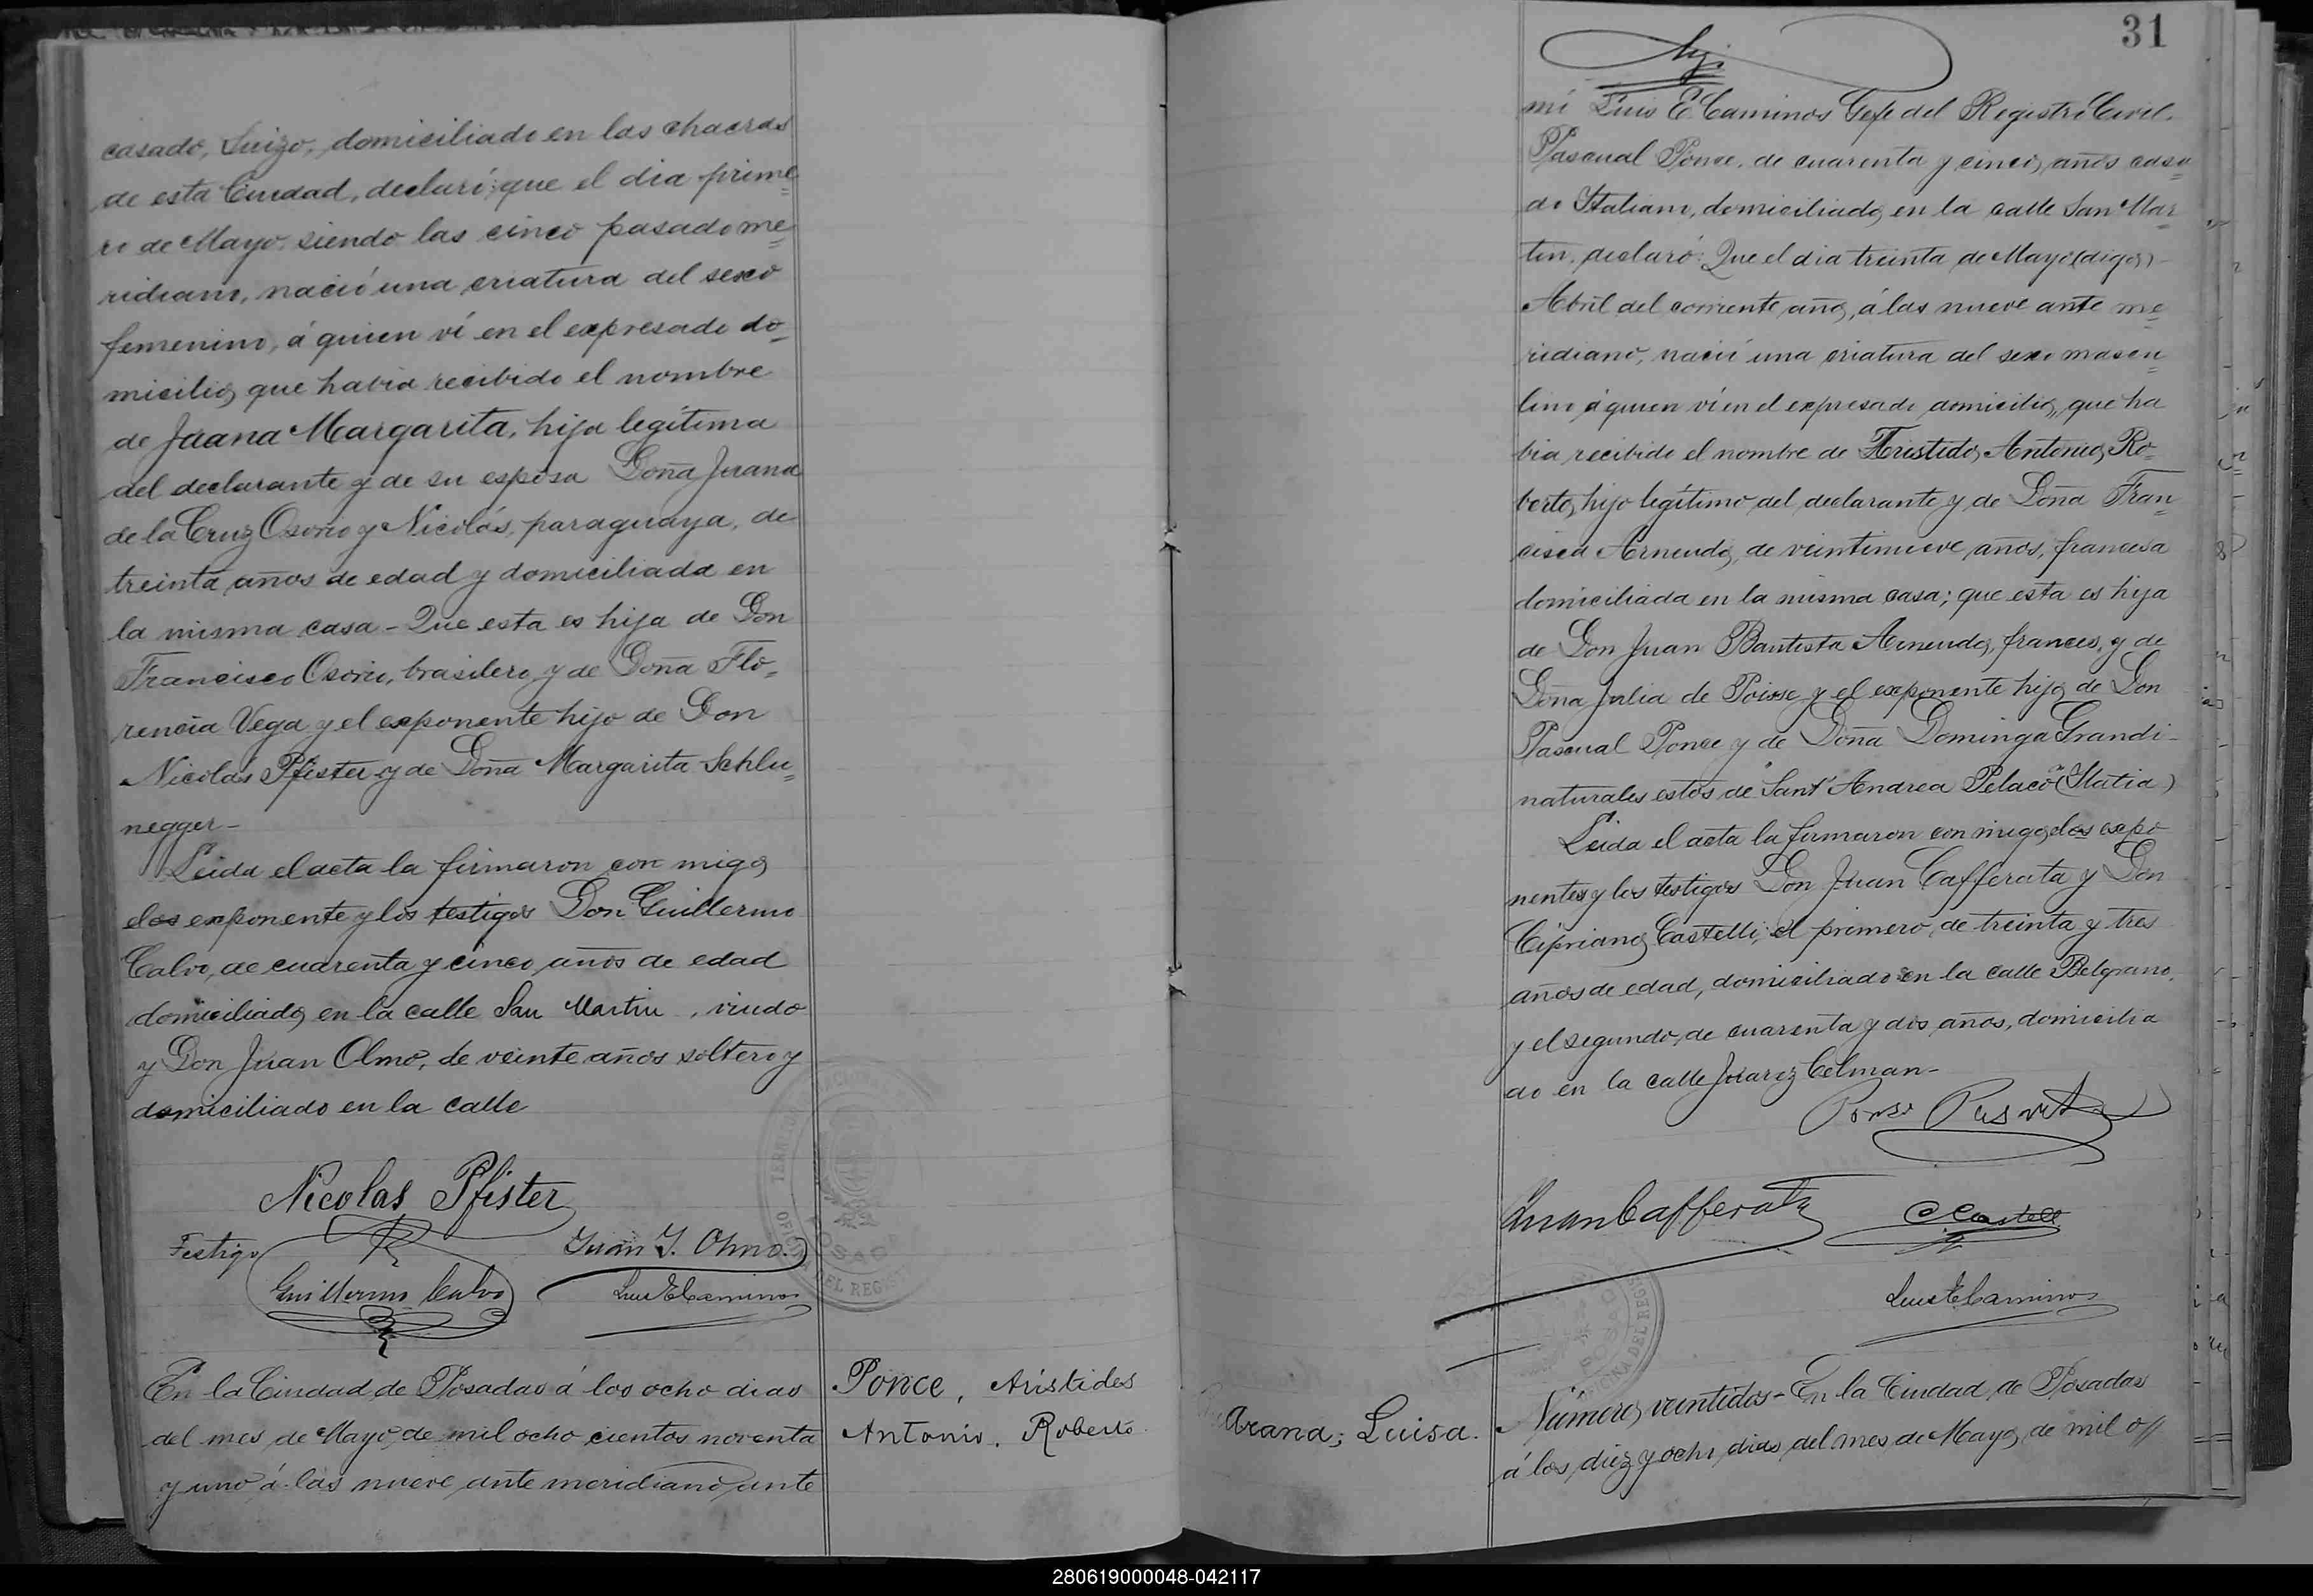 casado, Suizo, domiciliado en las chacras
de esta Ciudad, declaró: que el dia prime=
ro de Mayo, siendo las cinco pasado me=
ridiano, nació una criatura del sexo
femenino, á quien ví en el expresado do=
micilio, que habia recibido el nombre
de Juana Margarita, hija legítima
del declarante y de su esposa Doña Juana
de la Cruz Osorio y Nicolás, paraguaya, de
treinta años de edad y domiciliada en
la misma casa - Que esta es hija de Don
Francisco Osorio, brasilero, y de Doña Flo=
rencia Vega y el exponente hijo de Don
Nicolás Pfister y de Doña Margarita Schlu=
negger -
Leida el acta la firmaron con migo,
los exponente y los testigos Don Guillermo
Calvo, de cuarenta y cinco años de edad
domiciliado, en la calle San Martin, viudo
y Don Juan Olmo, de veinte años soltero y
domiciliado en la calle
Nicolas Pfister
Testigo
Juan J. Olmo.
Guillermo Calvo
Luis E Caminos
En la Ciudad de Posadas á los ocho dias
del mes de Mayo, de mil ocho cientos noventa
y uno á las nueve ante meridiano, ante
Ponce, Arístides
Antonio, Roberto
31
mí Luis E Caminos Gefe del Registro Civil.
Pascual Ponce, de cuarenta y cinco, años casa=
do Italiano, domiciliado, en la calle San Mar=
tin, declaró: Que el dia treinta de Mayo (digo)
Abril del corriente año, á las nueve ante me=
ridiano, nació una criatura del sexo mascu=
lino á quien ví en el expresado domicilio, que ha
bia recibido el nombre de Aristido, Antonio, Ro=
berto, hijo legítimo del declarante y de Doña Fran=
cisca de veintinueve años, francesa
domiciliada en la misma casa; que esta es hija
de Don Juan Bautista frances, y de
Doña Julia de Poisse y el exponente hijo de Don
Pascual Ponce y de Doña Dominga Grandi -
naturales estos de Sant' Andrea Pelaco (Italia)
Leida el acta la firmaron con migo, los expo
nentes y los testigos Don Juan Cafferata y Don
Cipriano Castelli; el primero, de treinta y tres
años de edad, domiciliado en la calle Belgrano,
y el segundo, de cuarenta y dos años, domicilia
do en la calle Juarez Celman -
Juan Cafferata
C Castelli
Luis E Caminos
Arana; Luisa.
Número, veintidos - En la Ciudad, de Posadas
á los, diez y ocho, dias del mes de Mayo, de mil o//
280619000048-042117